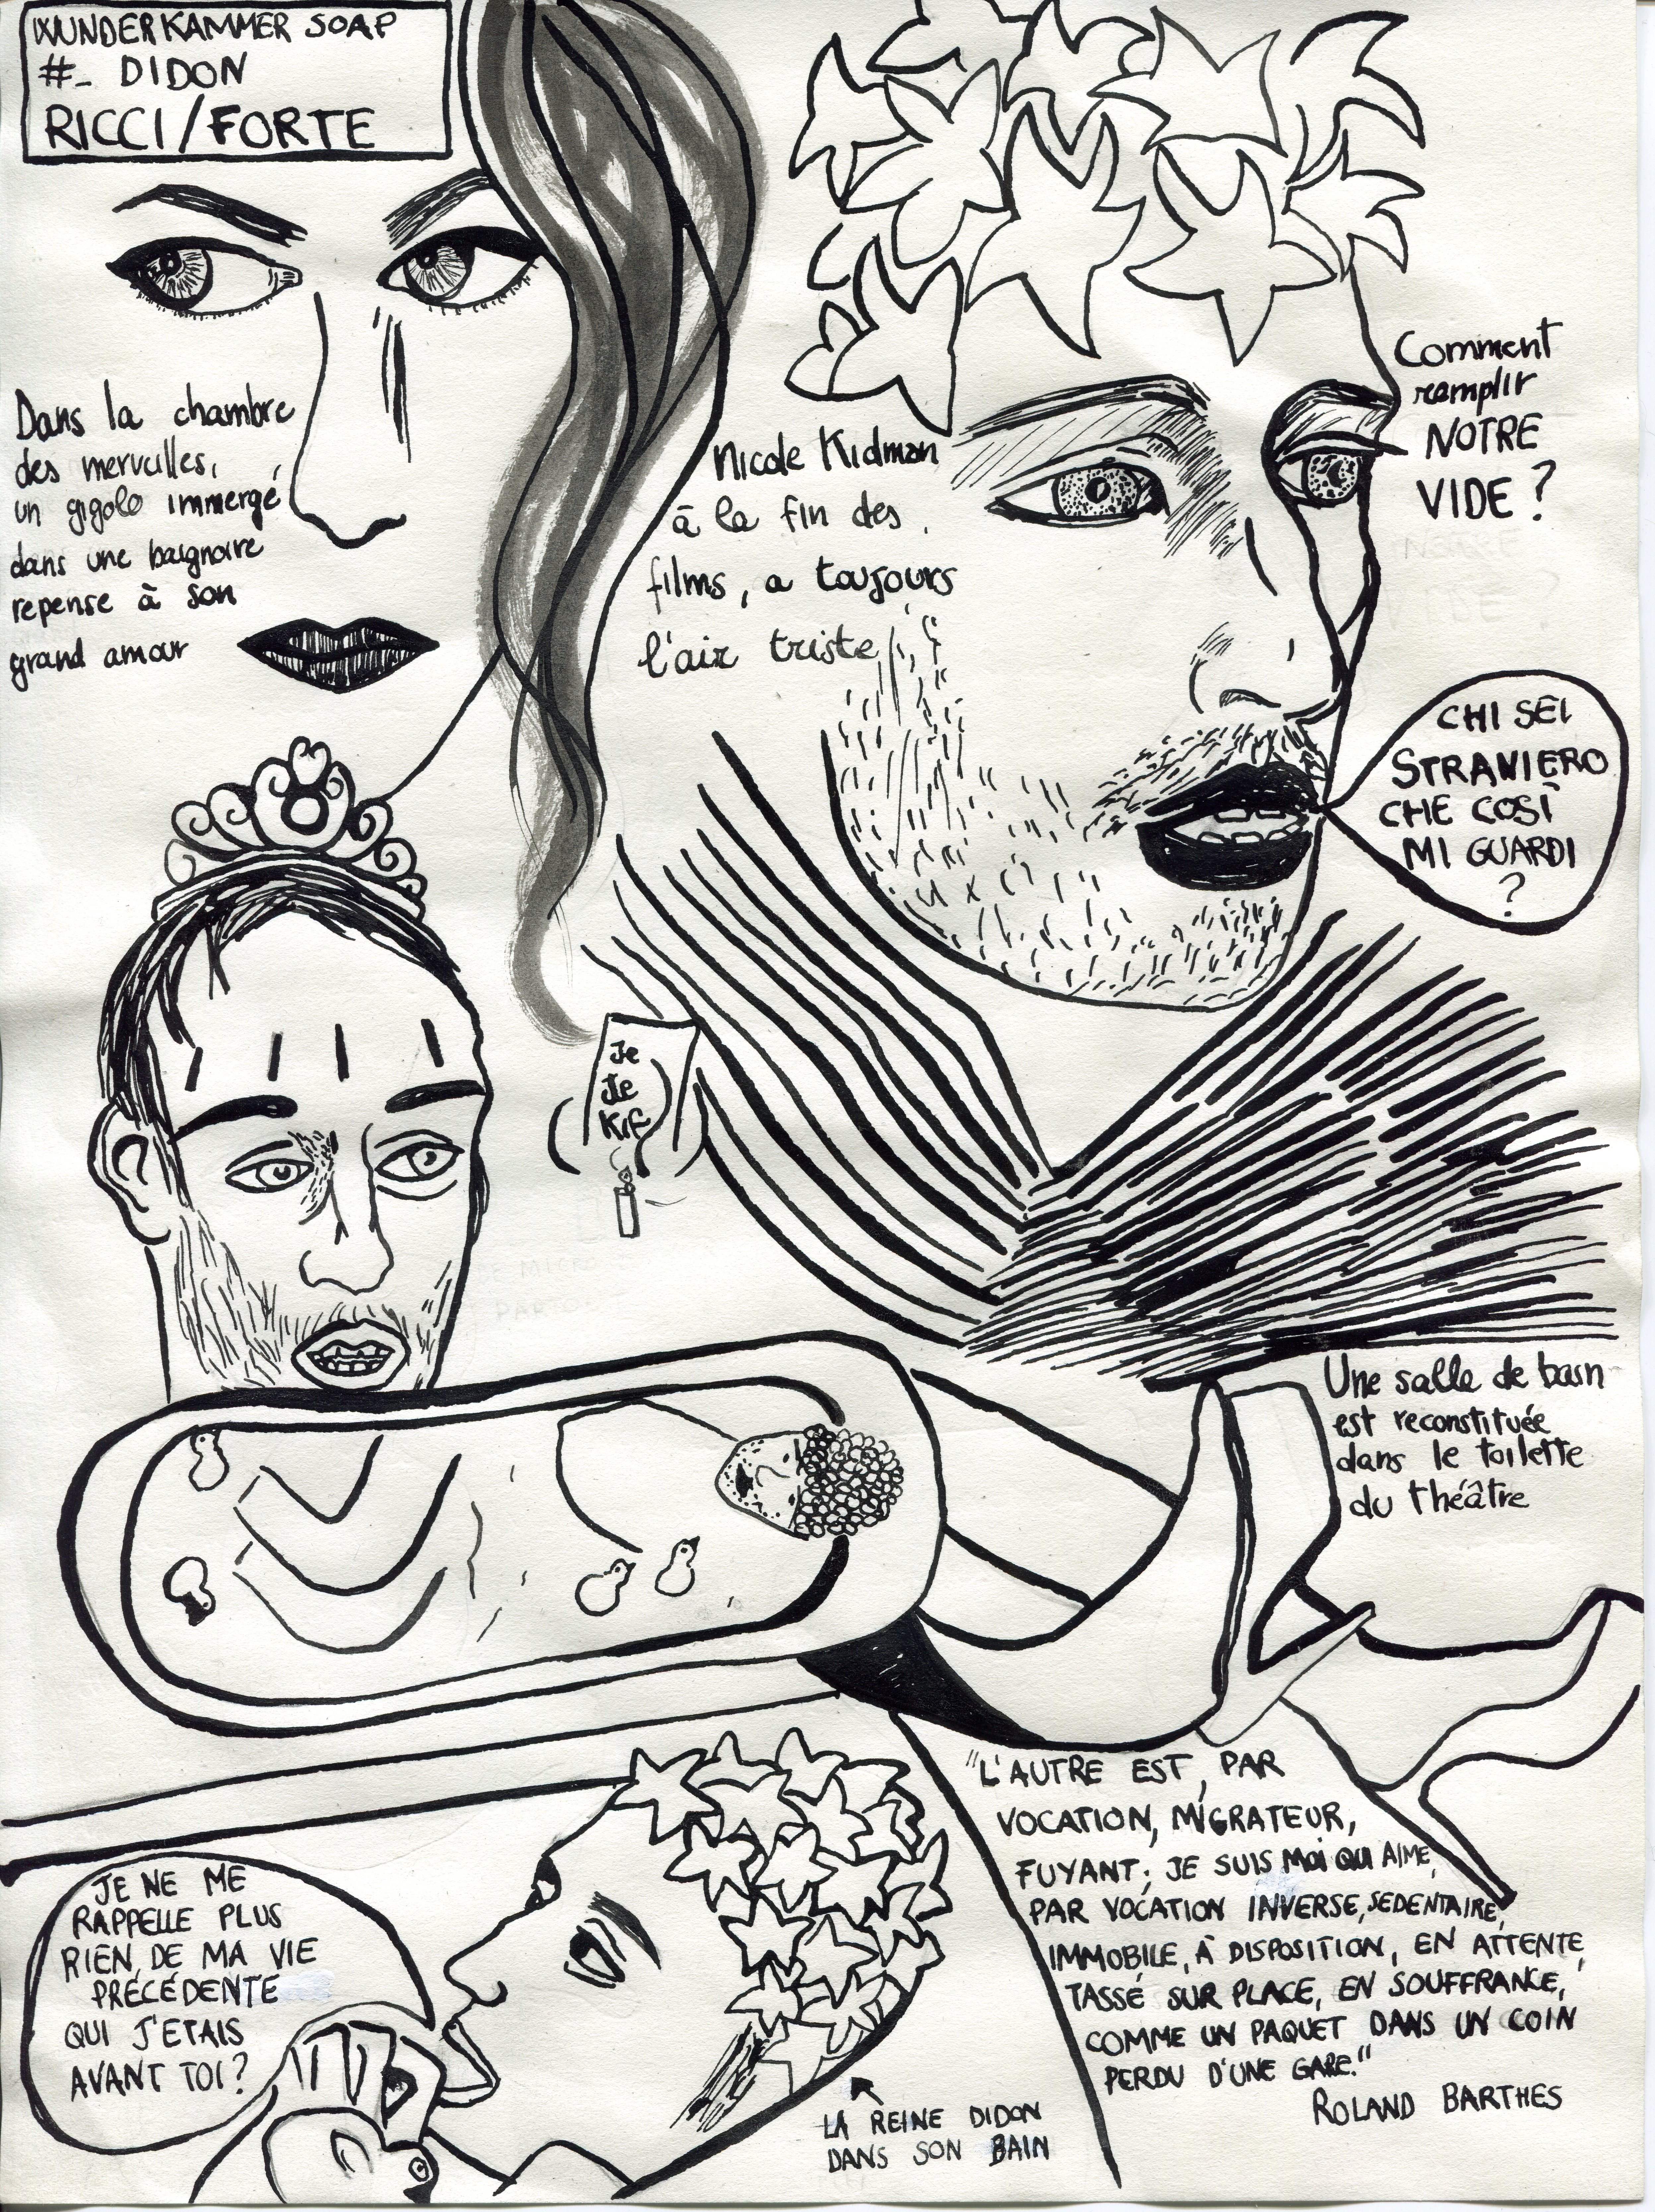 WUNDERKAMMER SOAP
#_ DIDON
RICCI/FORTE
Dans la chambre
des merveilles,
un gigolo immergé
dans une baignoire
repense à son
grand amour
Nicole Kidman
à la fin des
films, a toujours
l'air triste
Comment
remplir
NOTRE
VIDE ?
CHI SEI
STRANIERO
CHE COSÌ
MI GUARDI
?
Je
te
Kif
Une salle de bain
est reconstituée
dans le toilette
du théâtre
JE NE ME
RAPPELLE PLUS
RIEN, DE MA VIE
PRÉCÉDENTE
QUI J'ETAIS
AVANT TOI ?
LA REINE DIDON
DANS SON BAIN
"L'AUTRE EST, PAR
VOCATION, MIGRATEUR,
FUYANT; JE SUIS MOI QUI AIME,
PAR VOCATION INVERSE, SEDENTAIRE,
IMMOBILE, À DISPOSITION, EN ATTENTE,
TASSÉ SUR PLACE, EN SOUFFRANCE,
COMME UN PAQUET DANS UN COIN
PERDU D'UNE GARE."
ROLAND BARTHES